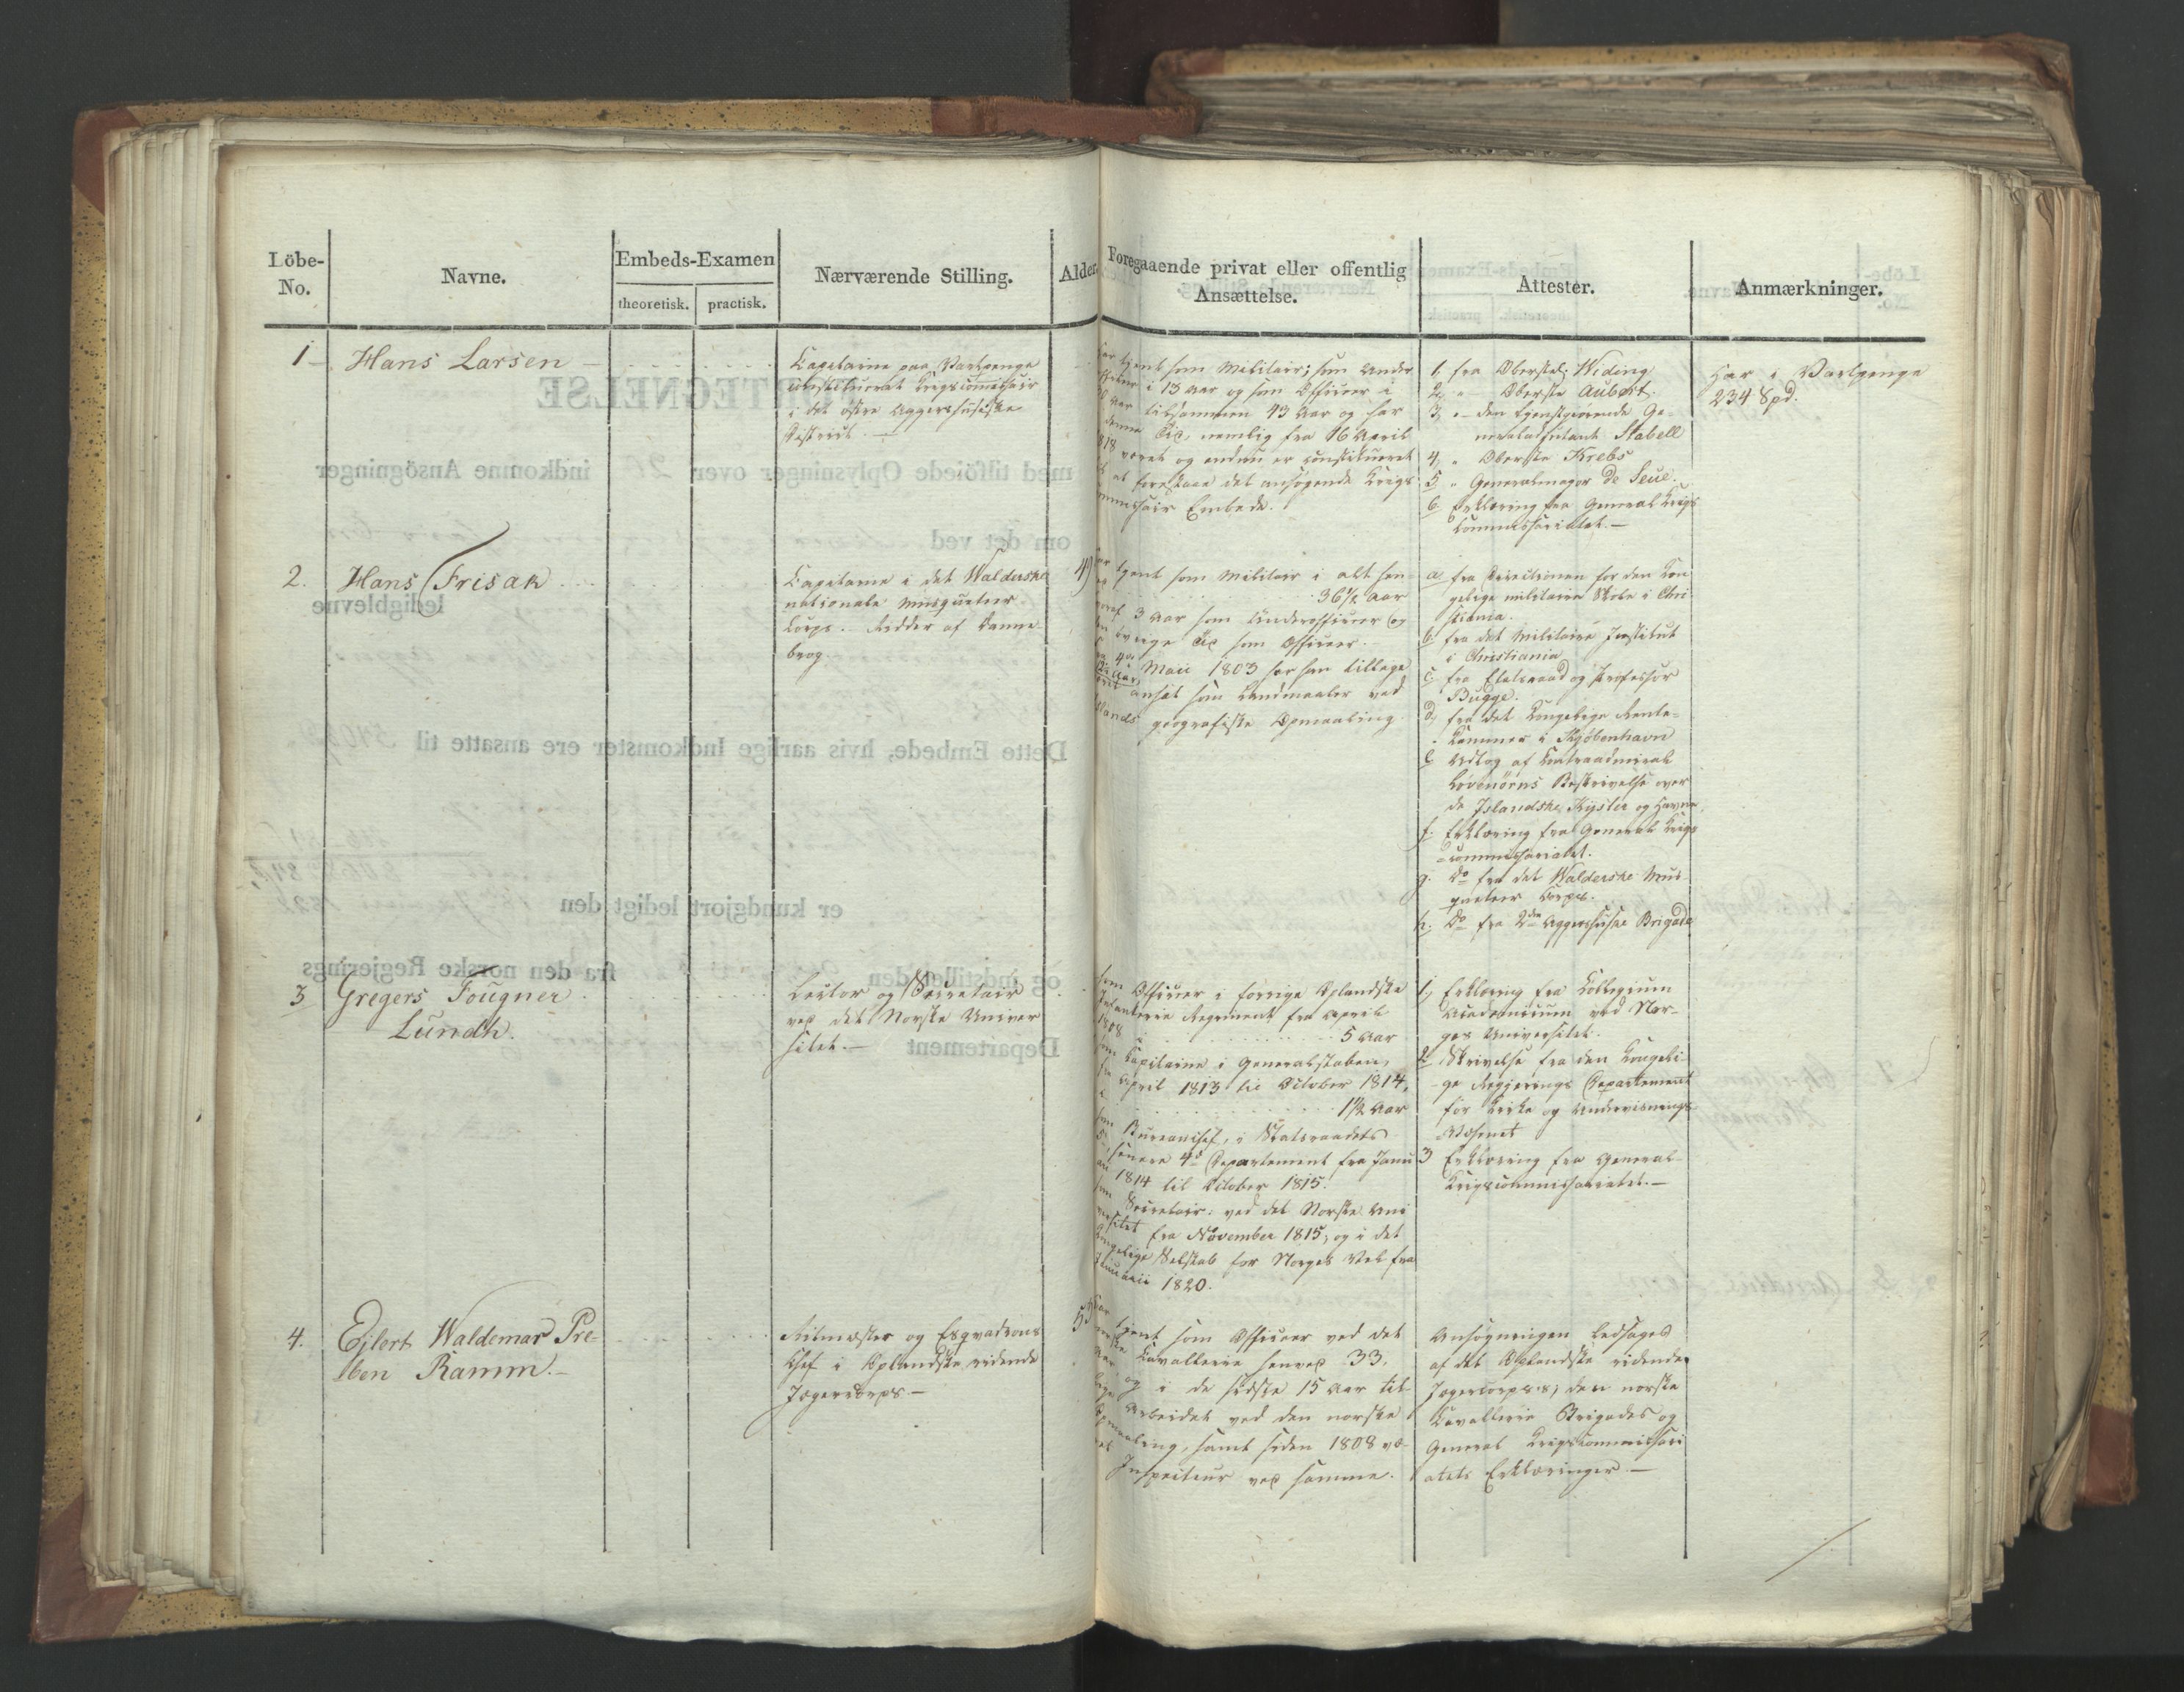 Löbe-
No.
Navne.
Embeds-Examen
theoretisk.
practisk.
Nærværende Stilling.
Alder.
Foregaaende privat eller offentlig
Ansættelse.
Attester.
Anmærkninger.
1
Hans Larsen
Capitaine paa Vartpenge
constitueret Krigscommissair
i det östre Aggershusiske
District.
tjent som Militair; som Under
i 13 Aar og som Officeer i
Aar tilsammen 43 Aar og har
denne Tid, nemlig fra 16 April
1818 været og endnu er constitueret
at forestaae det ansögende Krigs
commissair Embede.
1. fra Oberstl. Widing
2, " Oberste Aubert.
3, " den tjenstgjörende Ge-
neraladjutant Stabell
4, " Oberste Krebs
5, " Generalmajor de Seue.
6. Erklæring fra General Krigs
Commissariatet.
Har i Vartpenge
234 Spd.
2.
Hans Frisak
Capitaine i det Walderske
nationale Musqueteer
Corps. Ridder af Danne-
brog.
49
tjent som Militair i alt hen-
36 1/2 Aar
hvoraf 3 Aar som Underofficeer og
den övrige Tid som Officeer.
Maii 1803 har han tillige
været ansat som Landmaaler ved
Islands geografiske Opmaaling.
a, fra Directionen for den Kon
gelige militaire Skole i Chri
stiania.
b, fra det Militaire Institut
i Christiania
c, fra Etatsraad og Professor
Bugge.
d, fra det Kongelige Rente-
Kammer i Kjöbenhavn
e, Udtog af Contraadmiral
Lövenörns Beskrivelse over
de Islandske Kyster og Havne,
f. Erklæring fra General Krigs
commissariatet.
g. Do fra det Walderske Mus
queteer Corps.
h. Do fra 2den Aggershuske Brigade
3
Gregers Fougner
Lundh.
Lector og Secretair
ved det Norske Univer
sitet.
Som Officeer i forrige Oplandske
Infanterie Regiment fra April
1808
5 Aar
som Capitaine i Generalstaben,
fra April 1813 til October 1814,
1 1/2 Aar
som Bureauchef, i Statsraadets
5te, senere 4de Departement fra Janu
ari 1814 til October 1815.
som Secretair: ved det Norske Uni
versitet fra November 1815, og i det
Kongelige Selskab for Norges Vel fra
Januarii 1820.
1, Erklæring fra Collegium
academicum ved Nor-
ges Universitet.
2 Skrivelse fra den Kongeli-
ge Regjerings Departement
for Kirke og Underviisnings
Væsenet
3 Erklæring fra General-
Krigscommissariatet.
4.
Ejlert Waldemar Pre-
ben Ramm.
Ritmester og Esquadrons
Chef i Oplandske ridende
Jægercorps
tjent som Officeer ved det
norske Cavallerie henved 33.
Aar og i de sidste 15 Aar til-
lige Arbeidet ved den norske
Opmaaling, samt siden 1808 væ-
ret Inspecteur ved samme.
Ansögningen ledsages
af det Oplandske ridende
Jægercorpses, den norske
Cavallerie Brigades og
General Krigscommissari
atets Erklæringer